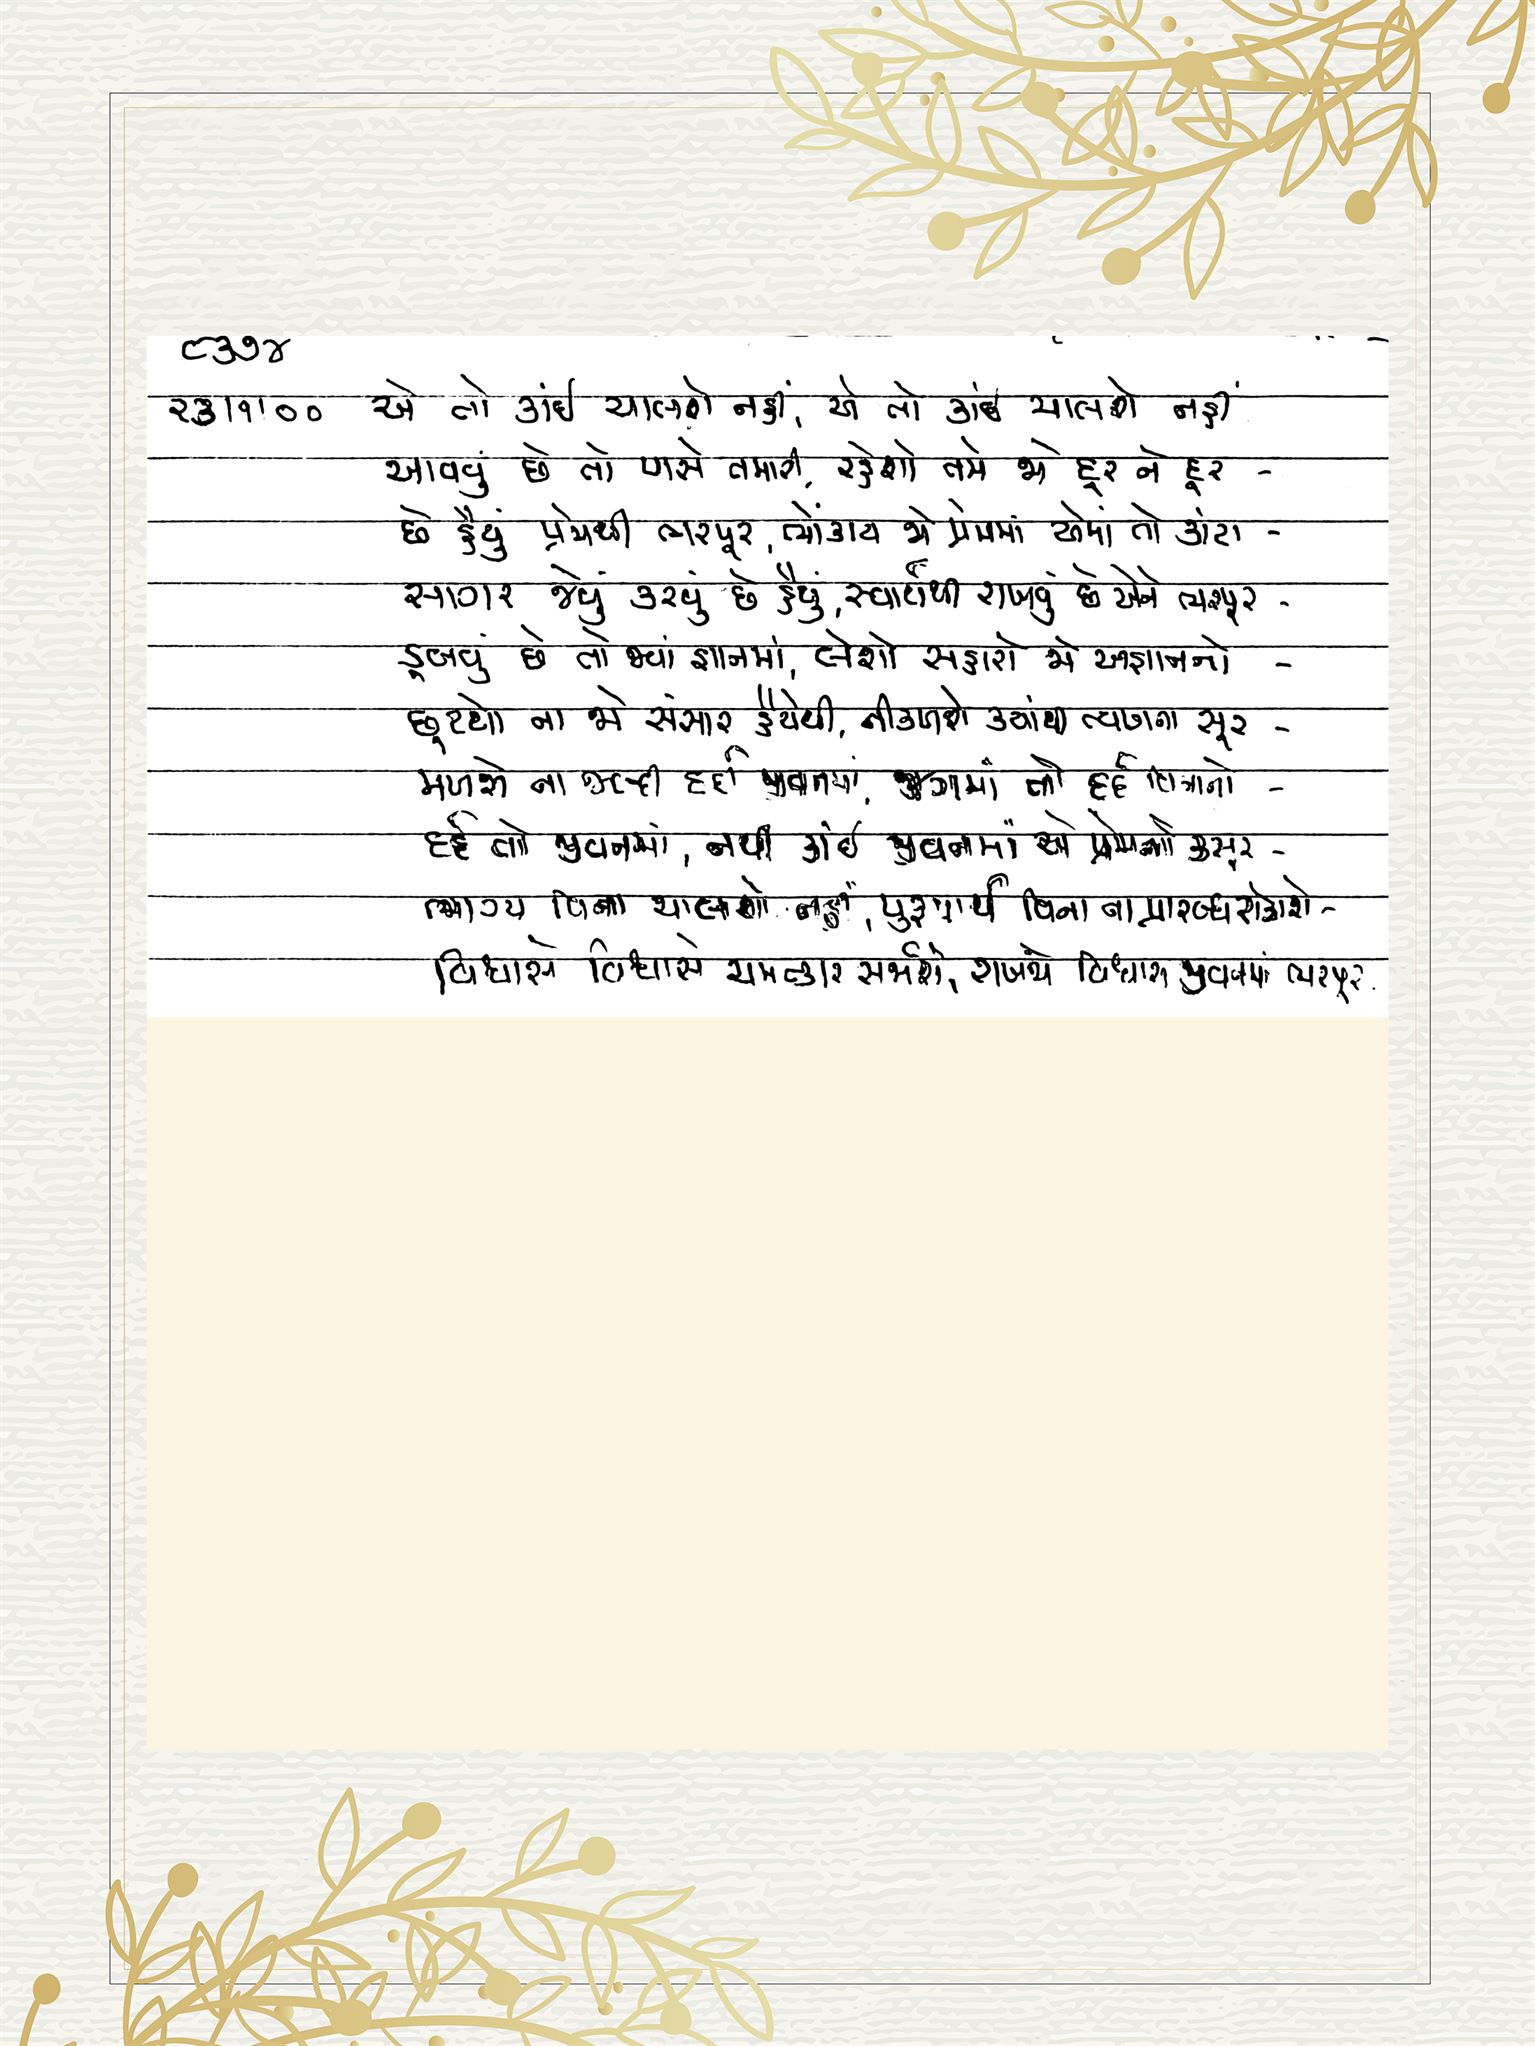 ૮૩૭૪
૨૩।૧।૦૦ એ તો કાંઈ ચાલશે નહીં, એ તો કાંઈ ચાલશે નહીં
આવવું છે તો પાસે તમારી, રહેશો તમે જો દૂર ને દૂર -
છે હૈયું પ્રેમથી ભરપૂર, ભોંકાય જો પ્રેમમાં એમાં તો કાંટા -
સાગર જેવું કરવું છે હૈયું, સ્વાર્થથી રાખવું છે એને ભરપૂર -
ડૂબવું છે તો જ્યાં જ્ઞાનમાં, લેશો સહારો જો અજ્ઞાનનો -
છૂટશે ના જો સંસાર હૈયેથી, નીકળશે ક્યાંથી ત્યાગના સૂર -
મળશે ના જલ્દી દર્દી જીવનમાં, જગમાં તો દર્દ વિનાનો -
દર્દ તો જીવનમાં, નથી કાંઈ જીવનમાં એ પ્રેમનો કસૂર -
ભાગ્ય વિના ચાલશે નહીં, પુરૂષાર્થ વિના ના પ્રારબ્ધ રોકાશે -
વિશ્વાસે વિશ્વાસે ચમત્કાર સર્જાશે, રાખજે વિશ્વાસ જીવનમાં ભરપૂર.